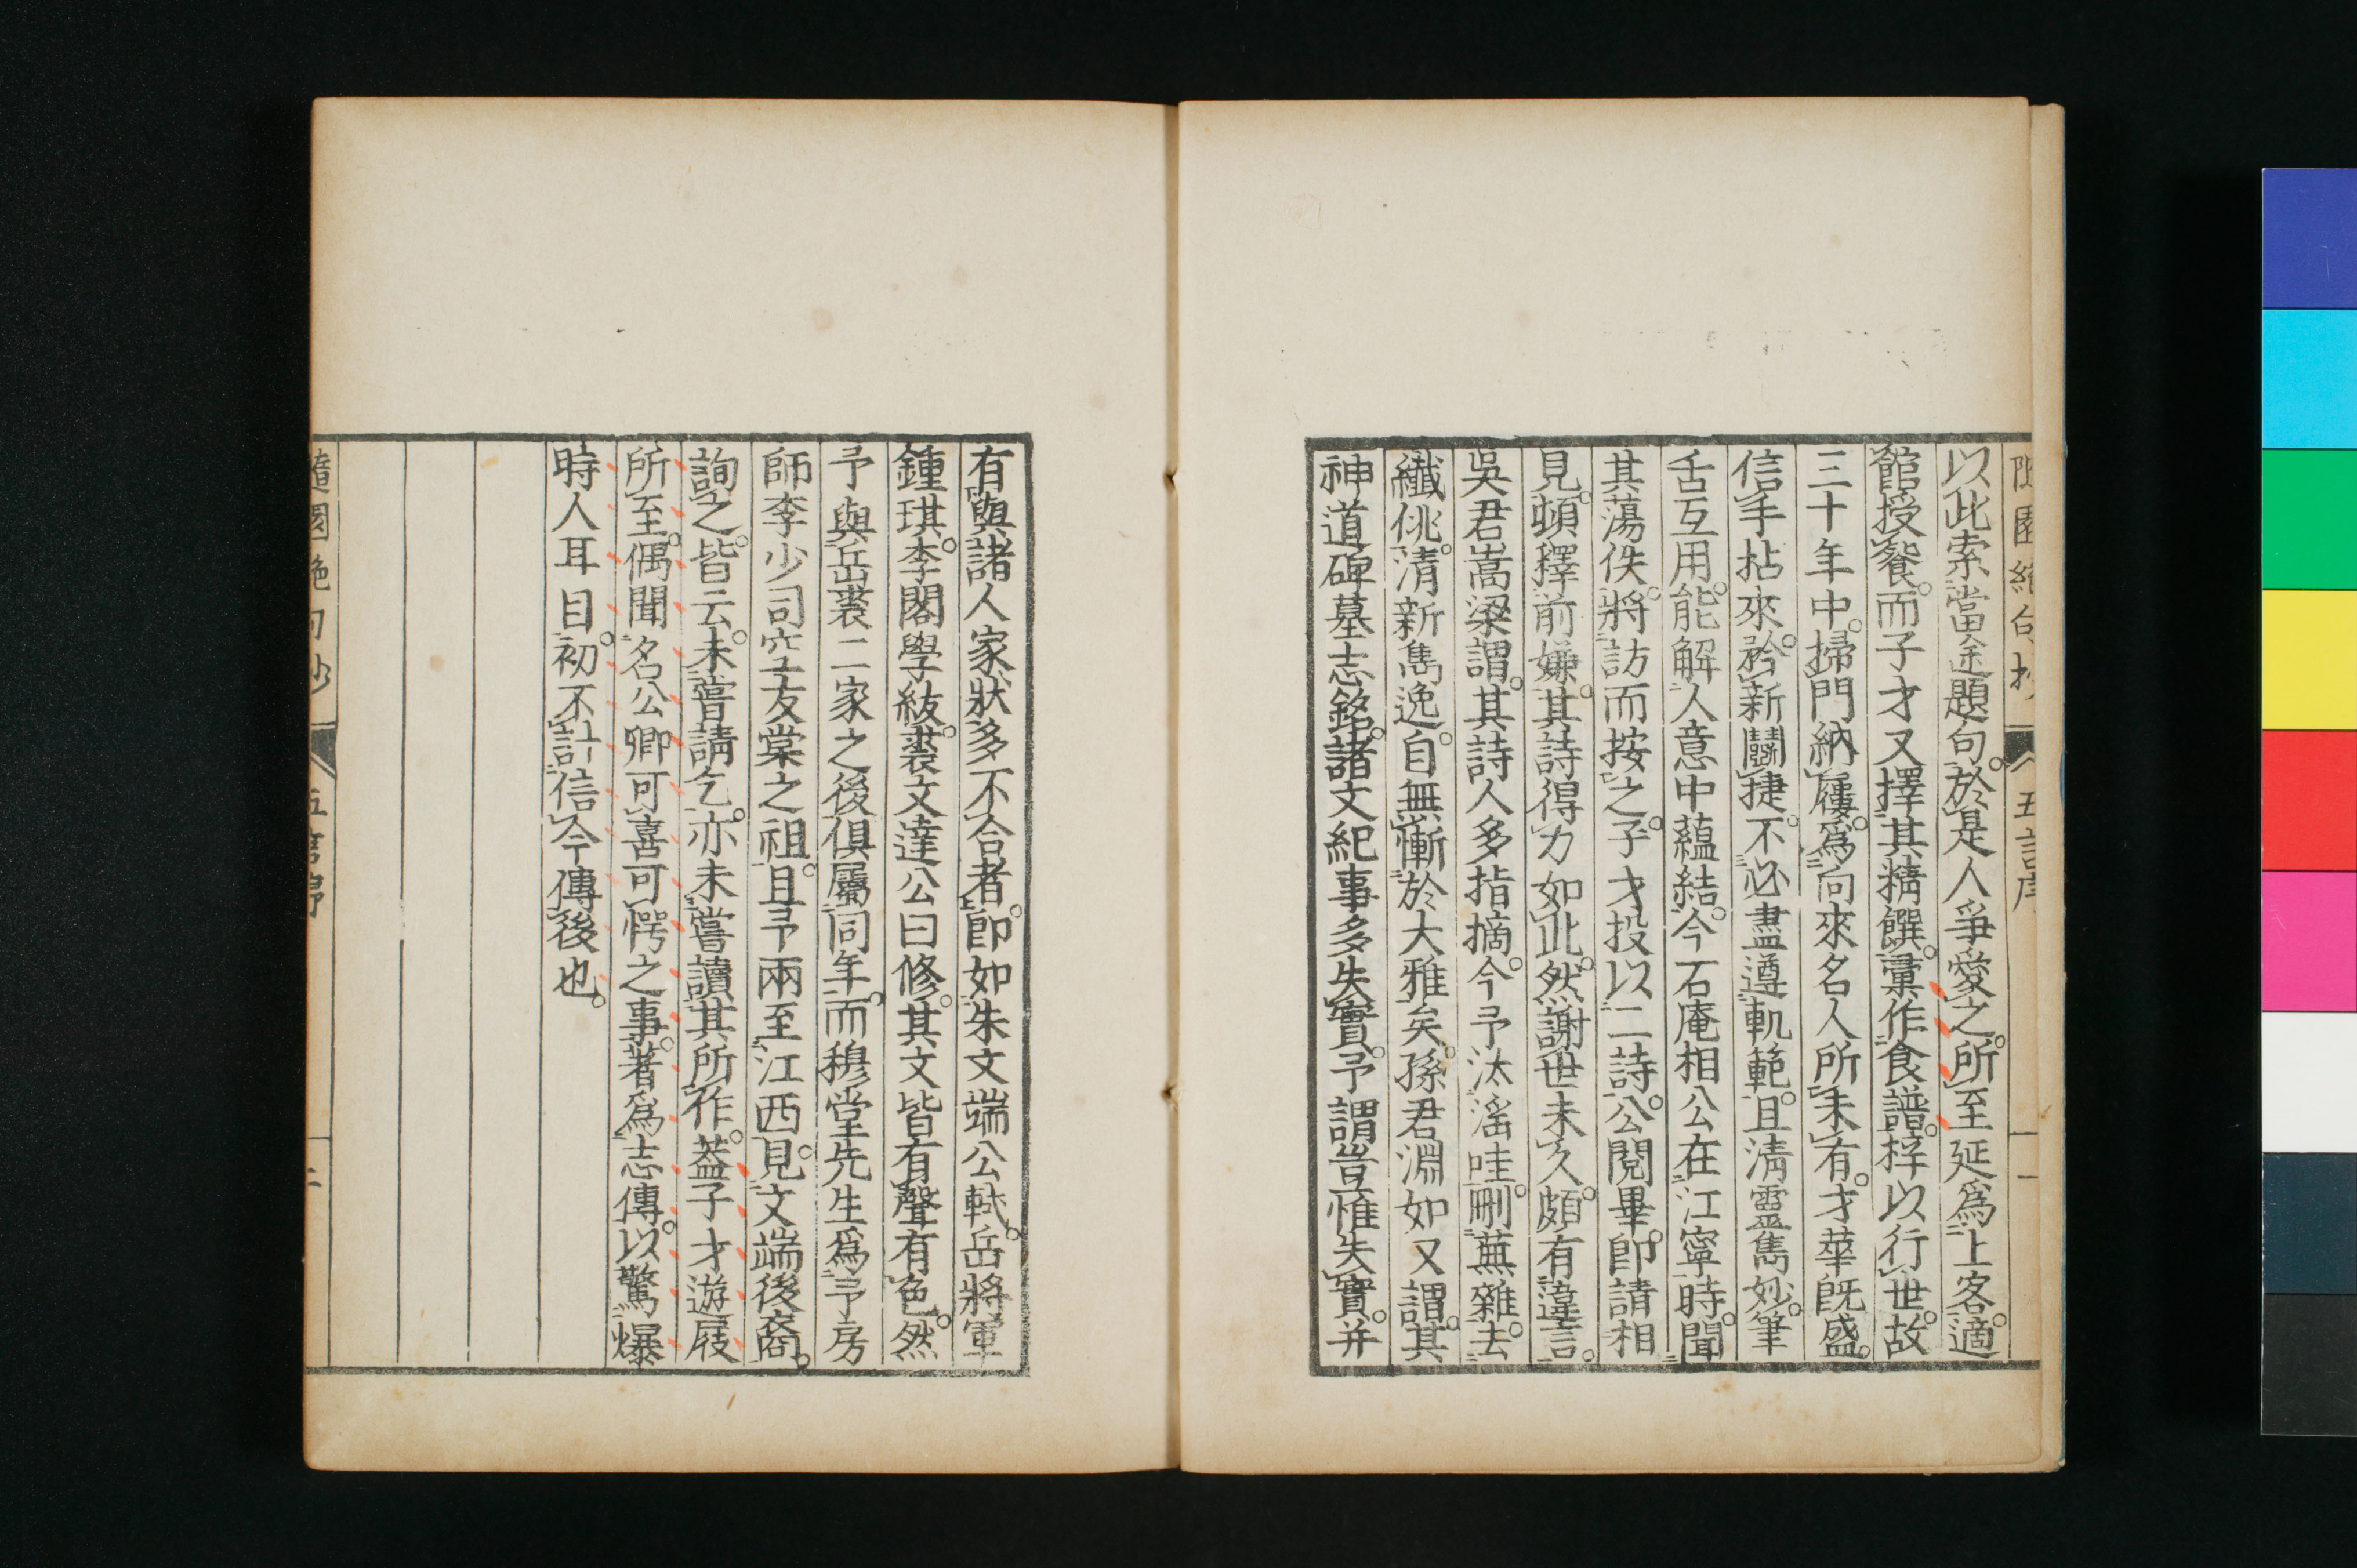 隨園絕句抄 五言序 一
以此索當途題句。於是人爭愛之。所至延爲上客。適
館授餐。而子才又擇其精饌。彙作食譜。梓以行世。故
三十年中。掃門納屨。爲向來名人所未有。才華旣盛。
信手拈來。矜新鬪捷。不必盡遵軌範。且清靈雋妙。筆
舌互用。能解人意中蘊結。今石庵相公在江寧時。聞
其蕩佚。將訪而按之。子才投以二詩。公閱畢。卽請相
見。頓釋前嫌。其詩得力如此。然謝世未久。頗有違言。
吳君嵩梁謂。其詩人多指摘。今予汰滛哇。刪蕪雜。去
纖佻。清新雋逸。自無慚於大雅矣。孫君淵如又謂。其
神道碑墓志銘。諸文紀事多失實。予謂豈惟失實。并
有與諸人家狀多不合者。卽如朱文端公軾。岳將軍
鍾琪。李閣學紱。裘文達公曰修。其文皆有聲有色。然
予與岳裘二家之後俱屬同年。而穆堂先生爲予房
師李少司空友棠之祖。且予兩至江西。見文端後裔。
詢之。皆云。未嘗請乞。亦未嘗讀其所作。葢子才游屐
所至。偶聞名公卿可喜可愕之事。著爲志傳。以驚爆
時人耳目。初不計信今傳後也。
隨園絕句抄 五言序 二